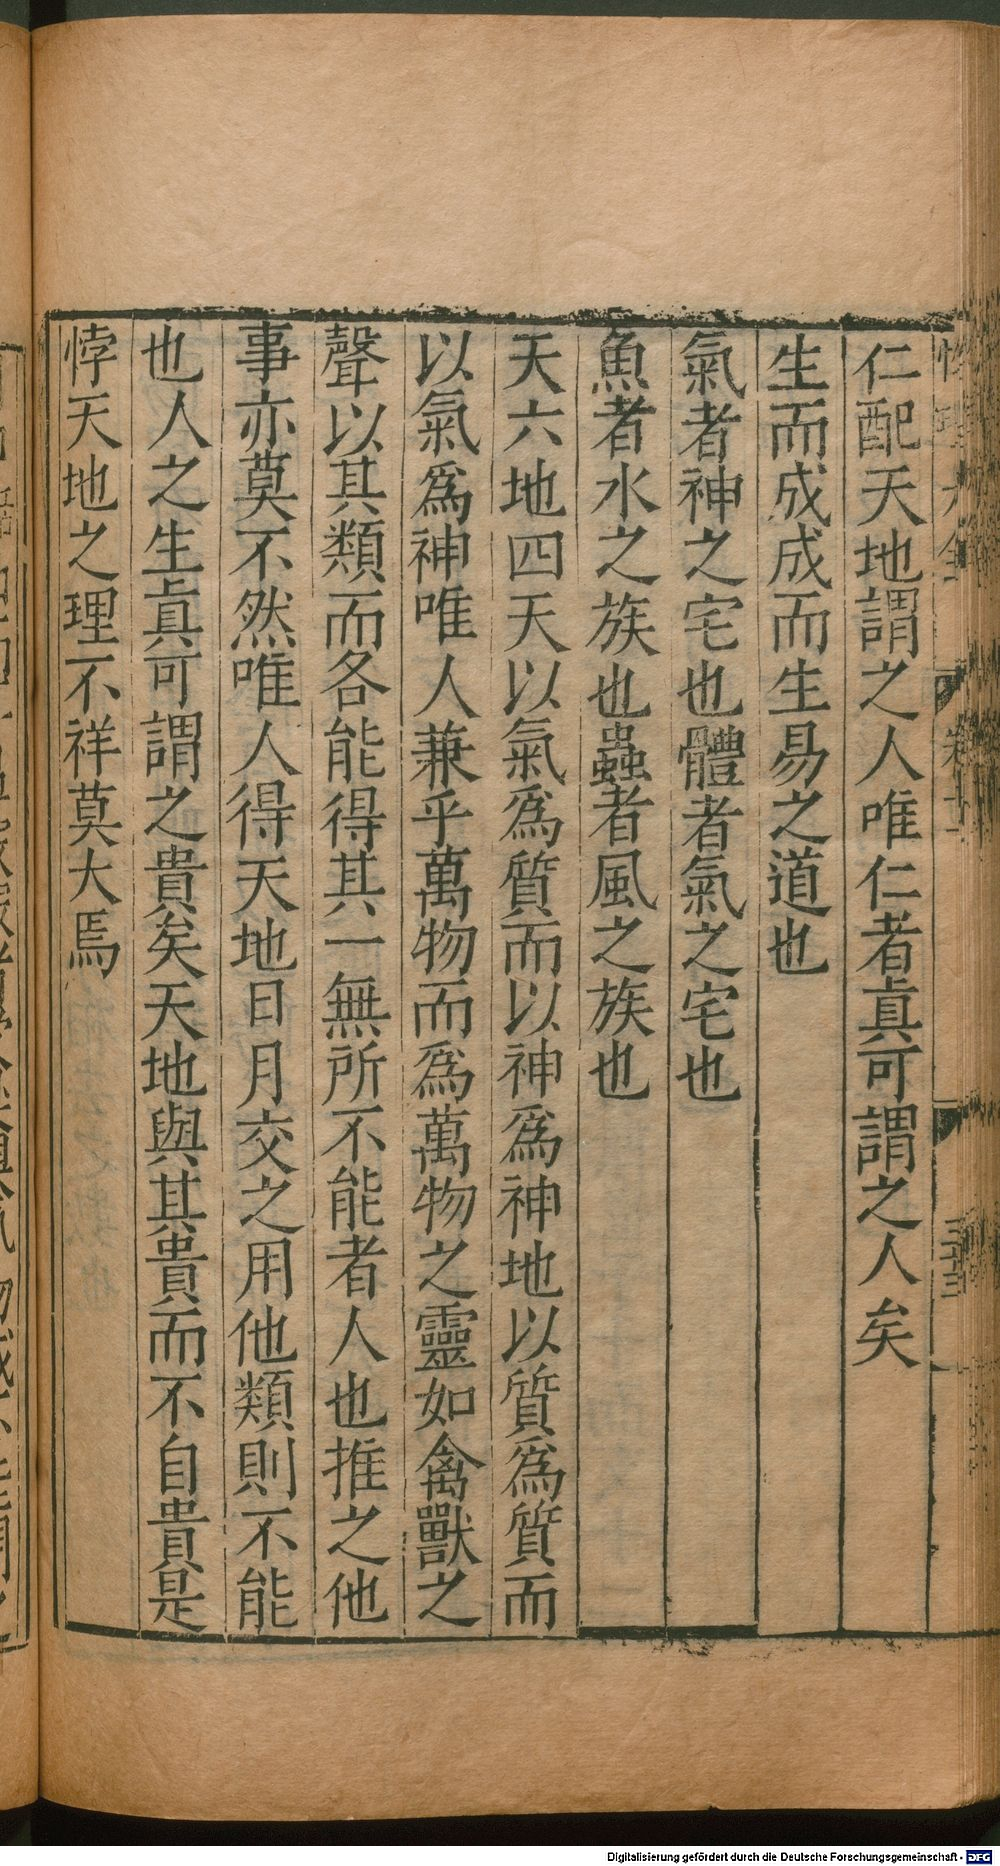 仁配天地謂之人唯仁者眞可謂之人矣
生而成成而生易之道也
氣者神之宅也體者氣之宅也
魚者水之族也蟲者風之族也
天六地四天以氣爲質而以神爲神地以質爲質而
以氣爲神唯人兼乎萬物而爲萬物之靈如禽獸之
聲以其類而各能得其一無所不能者人也推之他
事亦莫不然唯人得天地日月交之用他類則不能
也人之生眞可謂之貴矣天地與其貴而不自貴是
悖天地之理不祥莫大焉
Digitalisierung gefördert durch die Deutsche Forschungsgemeinschaft - DFG